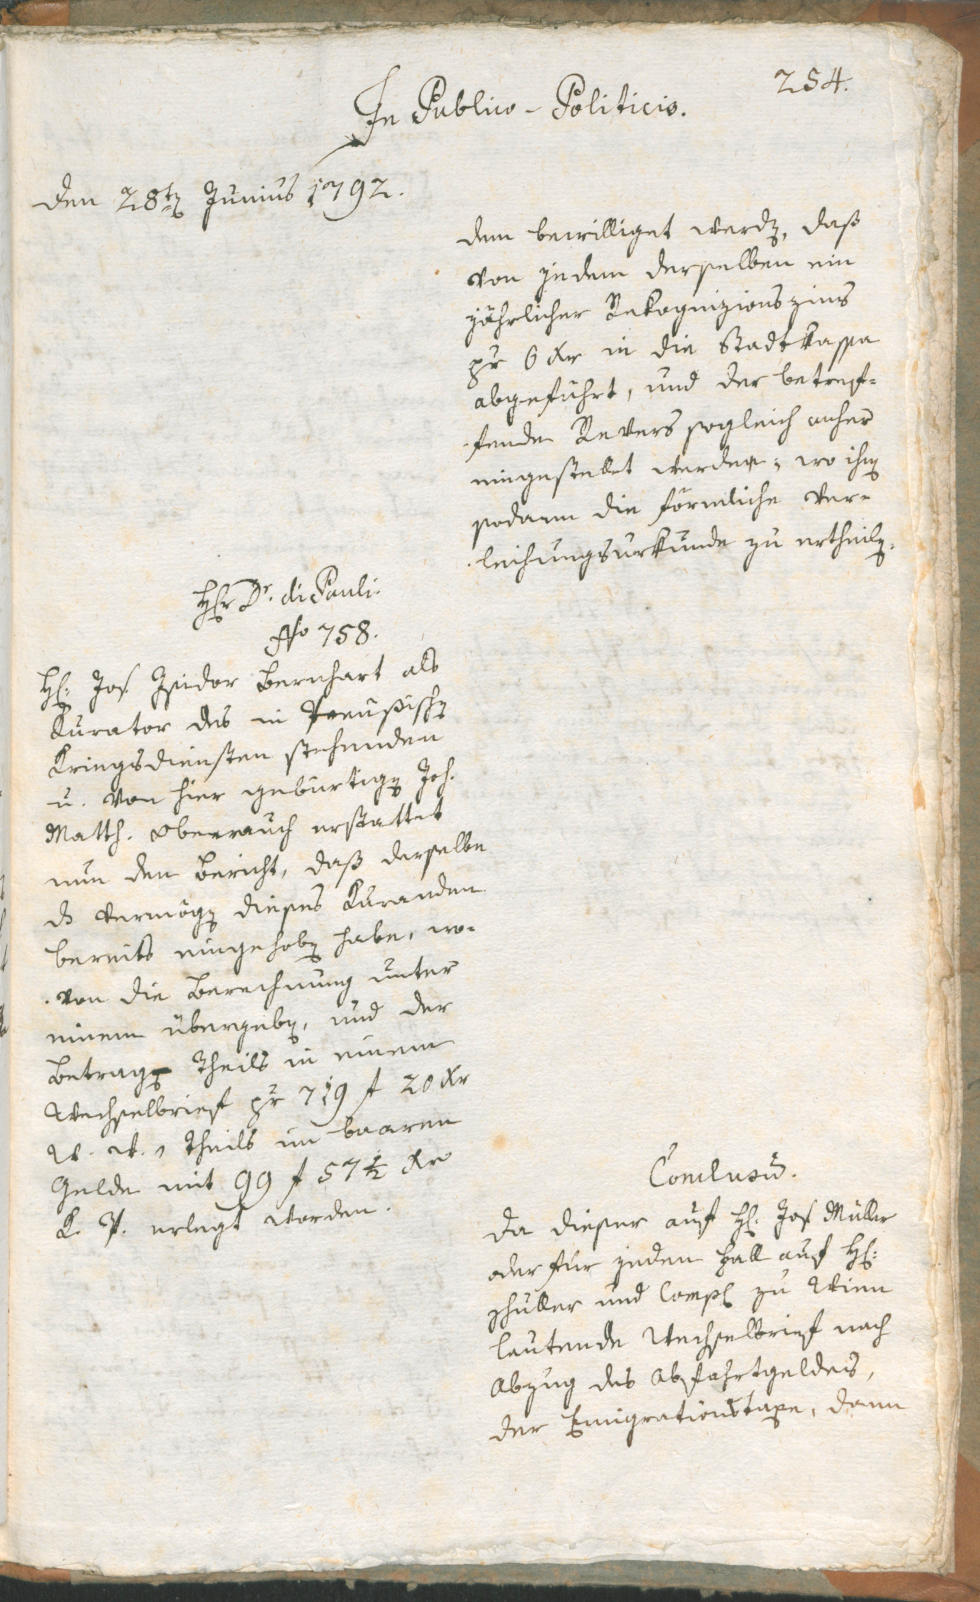 254.
In Publico-Politicis.
den 28ten Junius 1792.
dem bewilliget werden, daß
von jedem derselben ein
jährlicher Rekognizionszins
pr 6 Xr in die Stadtkassa
abgeführt, und der betref-
fende Revers sogleich anher
eingestellt werden; wo ihm
sodann die förmliche Ver-
leihungsurkunde zu ertheilen.
Hr Dr. di Pauli.
No 758.
H: Jos. Isidor Bernhart als
Kurator des in Preußischen
Kriegsdiensten stehenden
u. von hier gebürtigen Joh.
Matth. Oberrauch erstattet
nun den Bericht, daß derselbe
das Vermögen dieses Kuranden
bereits eingehoben habe, wo-
von die Berechnung unter
einem übergeben, und der
Betrag Theils in einem
Wechselbrief pr 719 f 20 Xr
W. W., Theils im baaren
Gelde mit 99 f 57½ Xr
K. P. erlegt worden.
Conclusū.
Da dieser auf H: Jos. Müller
oder für jeden Fall auf H:
Schuller und Comp: zu Wien
lautende Wechselbrief nach
Abzug des Abfahrtgeldes,
der Emigrationstaxe, dann